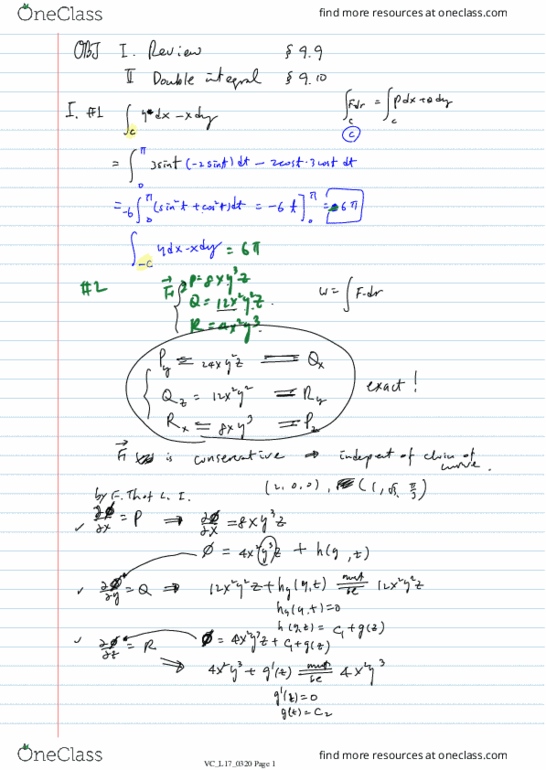 OneClass find more resources at oneclass.com
OBJ I. Review § 9.9
II Double integral § 9.10
I. #1 ∫_C y dx - x dy ∫_C F·dr = ∫_C P dx + Q dy
= ∫_0^π 3sint (-2sint) dt - 2cost·3cost dt
= -6 ∫_0^π (sin²t + cos²t) dt = -6 t ]_0^π = -6π
∫_{-C} y dx - x dy = 6π
#2 F { P = 8xy³z
Q = 12x²y²z W = ∫ F·dr
R = 4x²y³
P_y = 24xy²z = Q_x
Q_z = 12x²y² = R_y exact!
R_x = 8xy³ = P_z
F is conservative ⇒ indepent of choice of curve.
(2, 0, 0), (1, √3, π/3)
by F. Th of L. I.
✓ ∂φ/∂x = P ⇒ ∂φ/∂x = 8xy³z
φ = 4x²y³z + h(y, z)
✓ ∂φ/∂y = Q ⇒ 12x²y²z + h_y(y,z) must be = 12x²y²z
h_y(y,z) = 0
h(y,z) = C₁ + g(z)
✓ ∂φ/∂z = R φ = 4x²y³z + C₁ + g(z)
⇒ 4x²y³ + g'(z) must be = 4x²y³
g'(z) = 0
g(z) = C₂
VC_L17_0320 Page 1
OneClass find more resources at oneclass.com